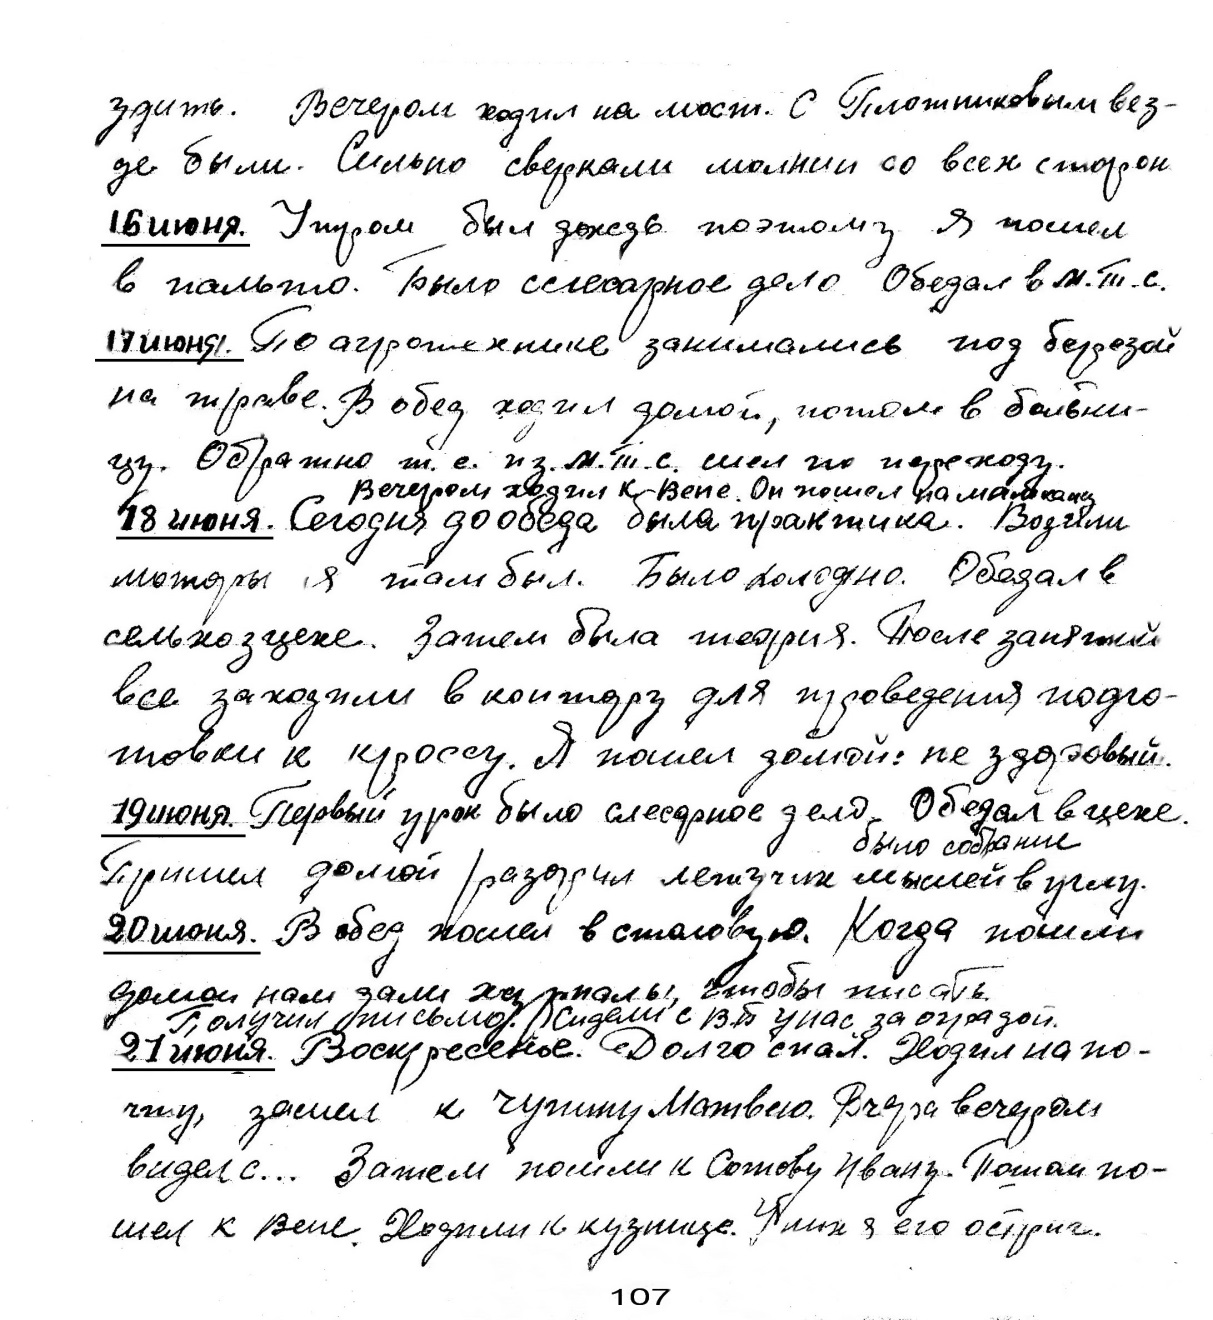 здить. Вечером ходил на мост. С Плотниковым вез-
де были. Сильно сверкали молнии со всех сторон
16 июня. Утром был дождь поэтому я пошел
в пальто. Было слесарное дело Обедал в м.т.с.
17 июня. По агротехнике занимались под березой
на траве. В обед ходил домой, потом в больни-
цу. Обратно т.е. из м.т.с. шел по переходу.
Вечером ходил к Вене. Он пошел на
18 июня. Сегодня до обеда была практика. Возили
моторы я там был. Было холодно. Обедал в
сельхозцехе. Затем была теория. После занятий
все заходили в контору для проведения подго-
товки к кроссу. Я пошел домой: не здоровый.
19 июня. Первый урок было слесарное дело. Обедал в цехе.
было собрание
Пришел домой разорил летучих мышей в углу.
20 июня. В обед пошел в столовую. Когда пошли
домой нам дали журналы, чтобы писать.
Получил письмо. Сидели с В.П у нас за оградой.
21 июня. Воскресенье. Долго спал. Ходил на по-
чту, зашел к Чупину Матвею. Вчера вечером
видел с... Затем пошли к Сотову Ивану. Потом по-
шел к Вене. Ходили к кузнице. я его остриг.
107